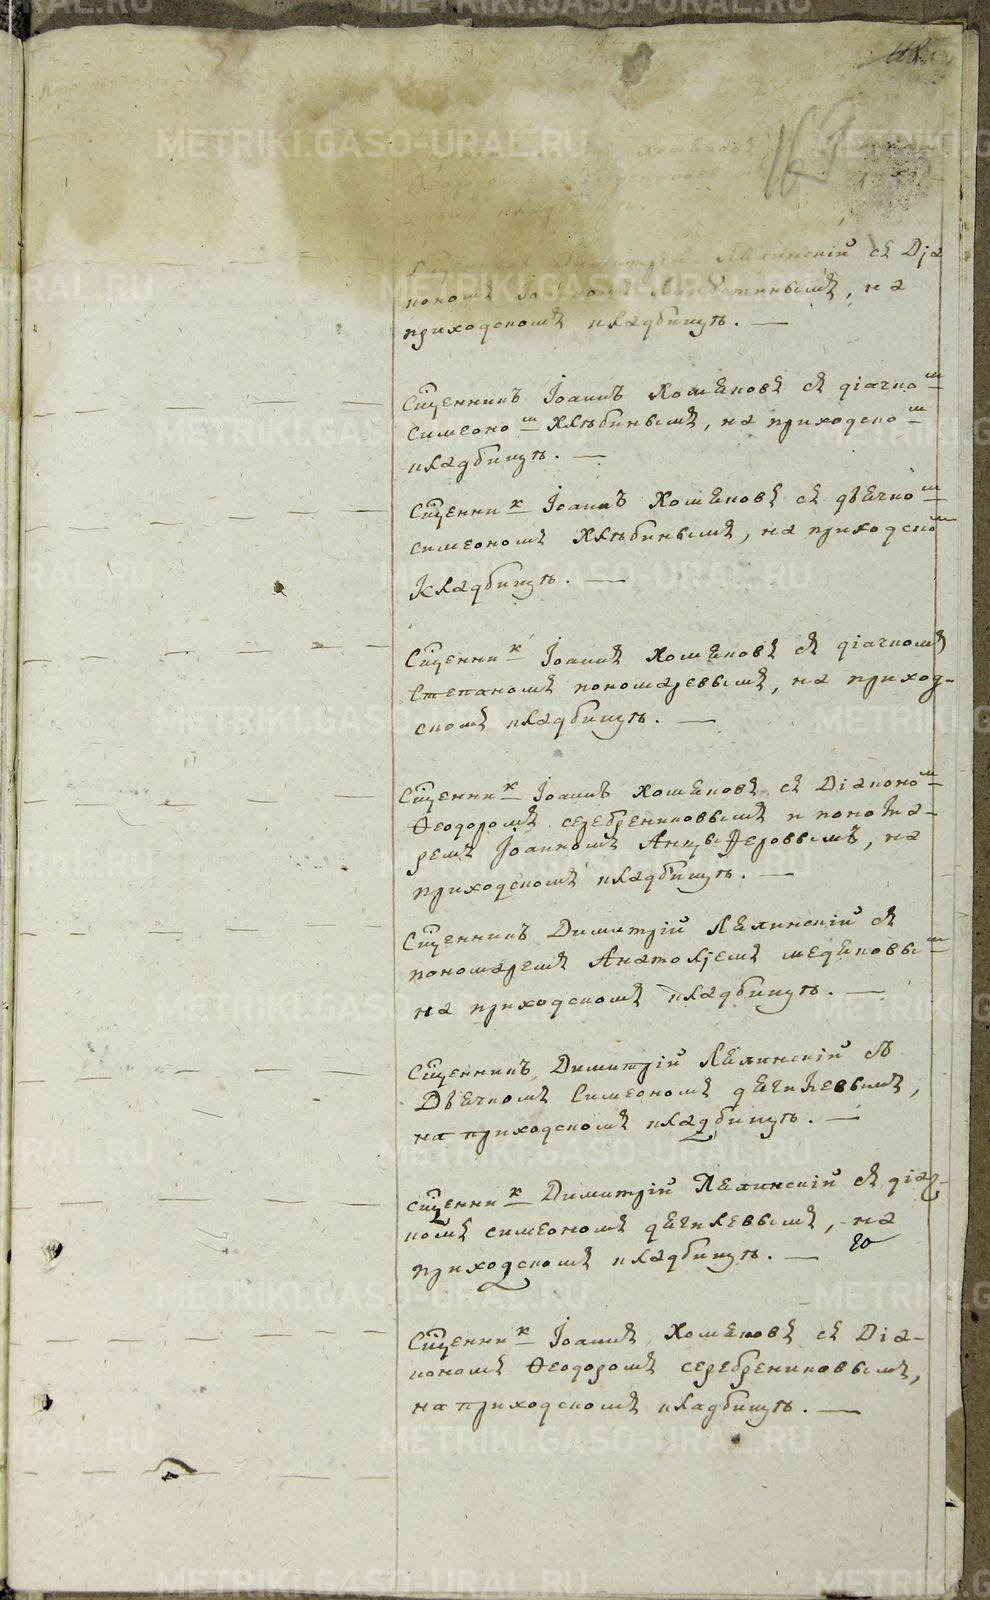 169
Хомяковъ
Димитрій Лялинскій съ Діа
кономъ
на
приходскомъ кладбищѣ. —
Сщенникъ Іоаннъ Хомяковъ съ діачко м
Симеоно м Хлѣбинымъ, на приходско м
кладбищѣ. —
Сщенни к Іоаннъ Хомяковъ съ дьячко м
симеономъ Хлѣбинымъ, на приходско м
Кладбищѣ. —
Сщенни к Іоаннъ Хомяковъ съ діачкомъ
Степаномъ пономаревымъ, на приход-
скомъ кладбищѣ. —
Сщенни к Іоаннъ Хомяковъ съ Діаконо м
Ѳеодоромъ серебрениковымъ и понома-
ремъ Іоанномъ на
приходскомъ кладбищѣ. —
Сщенникъ Димитрій Лялинскій съ
пономаремъ Анатоліемъ медяковы м
на приходскомъ кладбищѣ. —
Сщенникъ Димитрій Лялинскій съ
Дьячкомъ Симеономъ дягилевымъ,
на приходскомъ кладбищѣ. —
сщенни к Димитрій Лялинскій съ діач-
комъ симеономъ дягилевымъ, на
приходскомъ кладбищѣ. —
Сщенни к Іоаннъ Хомяковъ съ Діа-
кономъ Ѳеодоромъ серебрениковымъ,
на приходскомъ кладбищѣ. —
METRIKI.GASO-URAL.RU